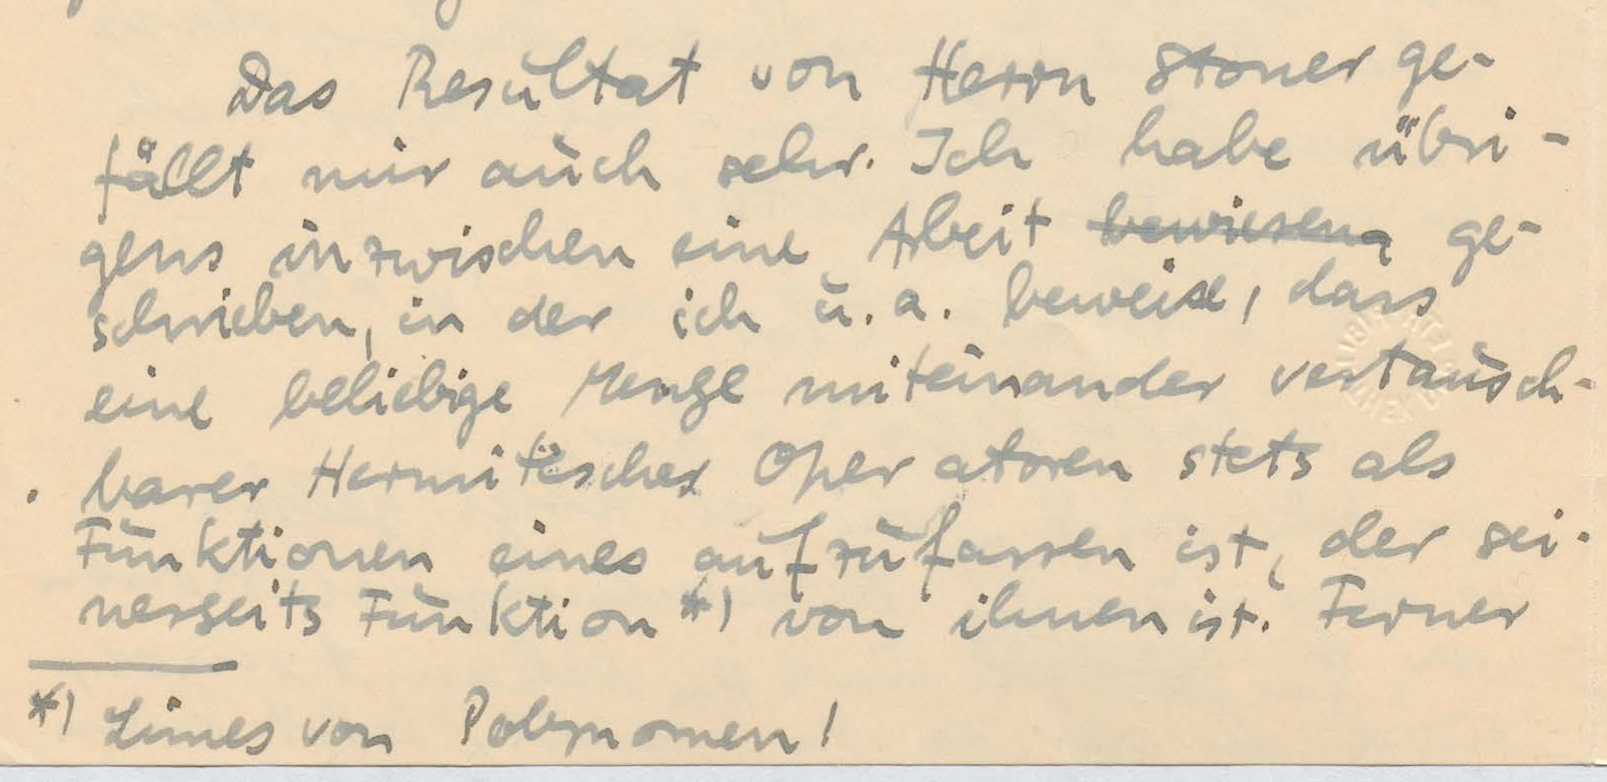 Das Resultat von Herrn Stoner ge-
fällt mir auch sehr. Ich habe übri-
gens inzwischen eine Arbeit bewiesen, ge-
schrieben, in der ich u. a. beweise, dass
eine beliebige Menge miteinander vertausch-
barer Hermitescher Operatoren stets als
Funktionen eines aufzufassen ist, der sei-
nerseits Funktion *) von ihnen ist. Ferner
*) Limes von Polynomen!